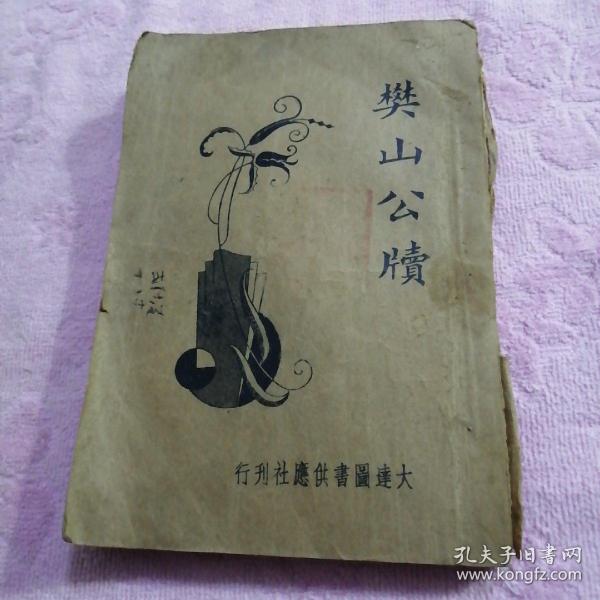 樊山公牘
大達圖書供應社刊行
孔夫子旧书网
www.kongfz.com